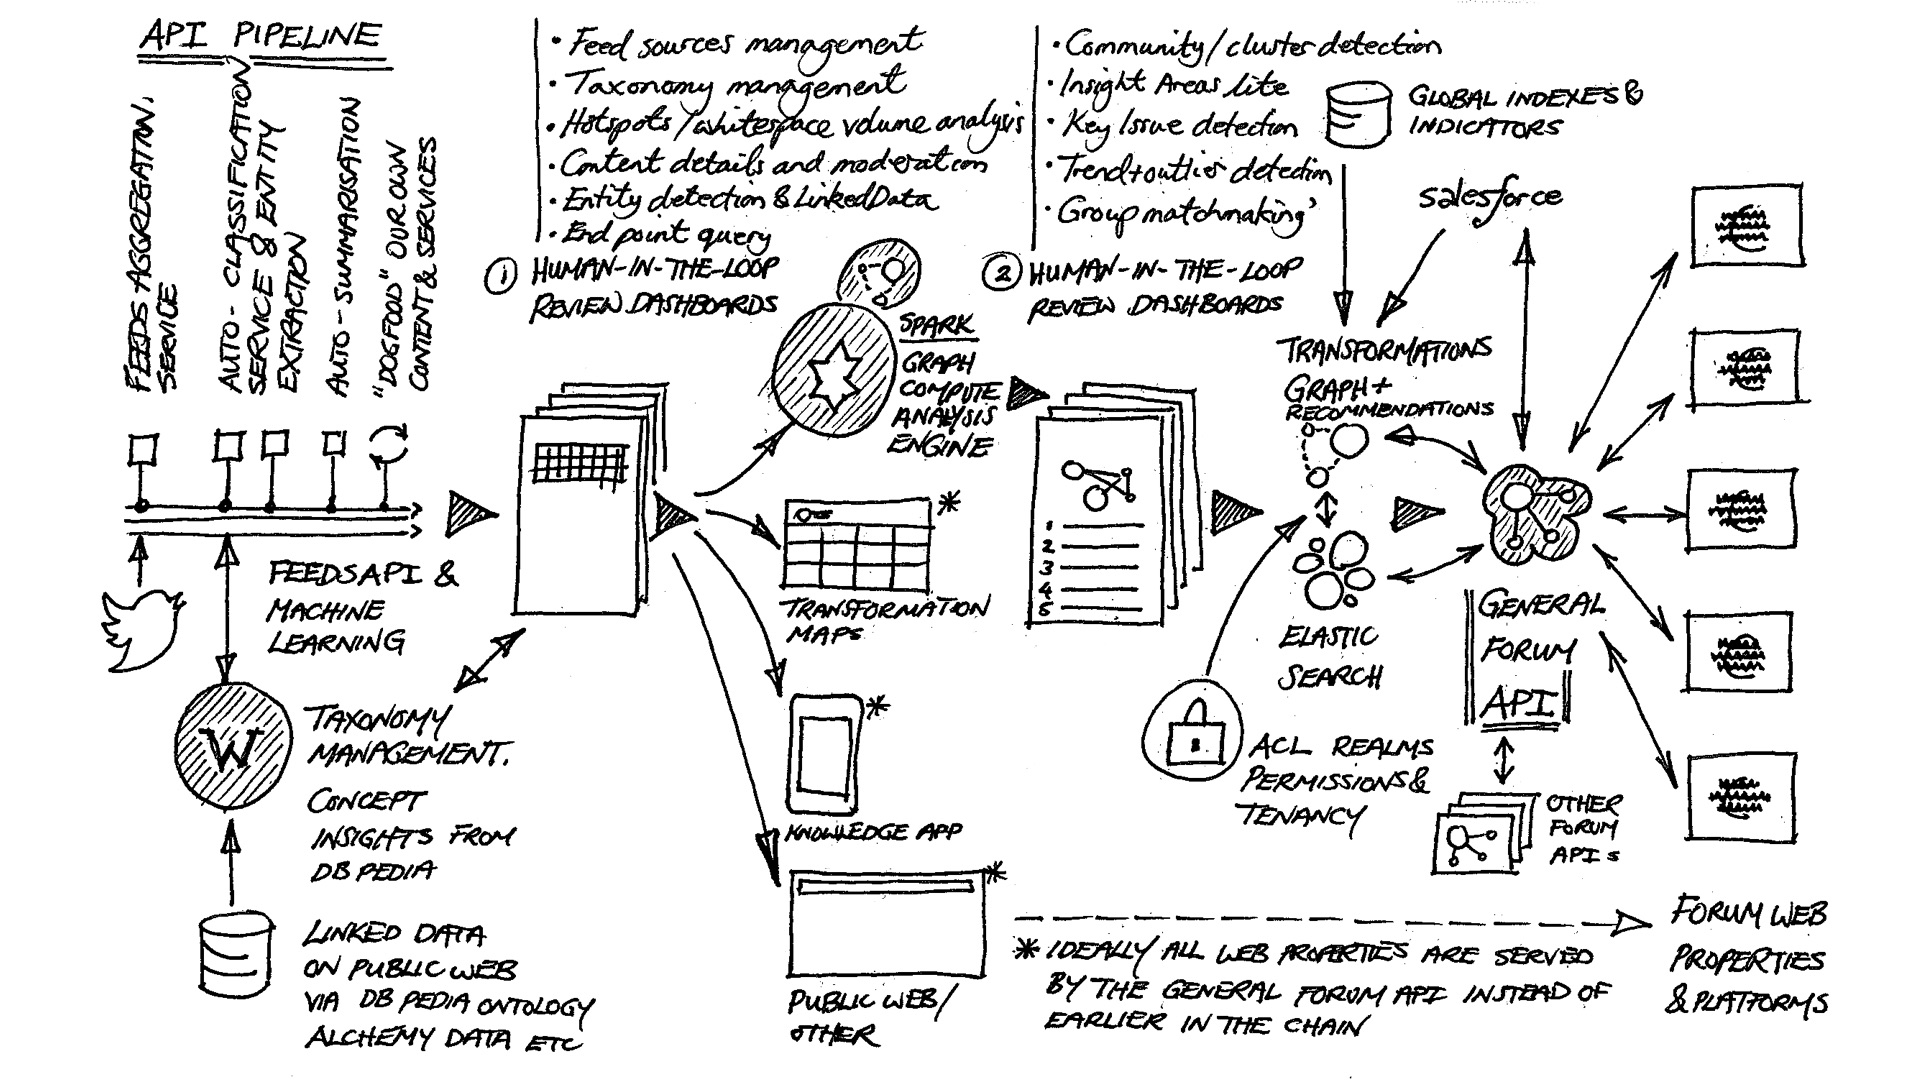 API PIPELINE
FEEDS AGGREGATION.
SERVICE
AUTO-CLASSIFICATION
SERVICE & ENTITY
EXTRACTION
AUTO-SUMMARISATION
"DOGFOOD" OUR OWN
CONTENT & SERVICES
• Feed sources management
• Taxonomy management
• Hotspots/whitespace volume analysis
• Content details and moderation
• Entity detection & LinkedData
• End point query
1 HUMAN-IN-THE-LOOP
REVIEW DASHBOARDS
• Community/cluster detection
• Insight Areas lite
• Key Issue detection
• Trend+outlier detection
• Group matchmaking'
2 HUMAN-IN-THE-LOOP
REVIEW DASHBOARDS
GLOBAL INDEXES &
INDICATORS
salesforce
SPARK
GRAPH
COMPUTE
ANALYSIS
ENGINE
TRANSFORMATIONS
GRAPH +
RECOMMENDATIONS
FEEDS API &
MACHINE
LEARNING
TRANSFORMATION
MAPS
*
1
2
3
4
5
ELASTIC
SEARCH
GENERAL
FORUM
API
W
TAXONOMY
MANAGEMENT.
CONCEPT
INSIGHTS FROM
DB PEDIA
*
KNOWLEDGE APP
ACL REALMS
PERMISSIONS &
TENANCY
OTHER
FORUM
APIs
LINKED DATA
ON PUBLIC WEB
VIA DB PEDIA ONTOLOGY
ALCHEMY DATA ETC
*
PUBLIC WEB/
OTHER
* IDEALLY ALL WEB PROPERTIES ARE SERVED
BY THE GENERAL FORUM API INSTEAD OF
EARLIER IN THE CHAIN
FORUM WEB
PROPERTIES
& PLATFORMS